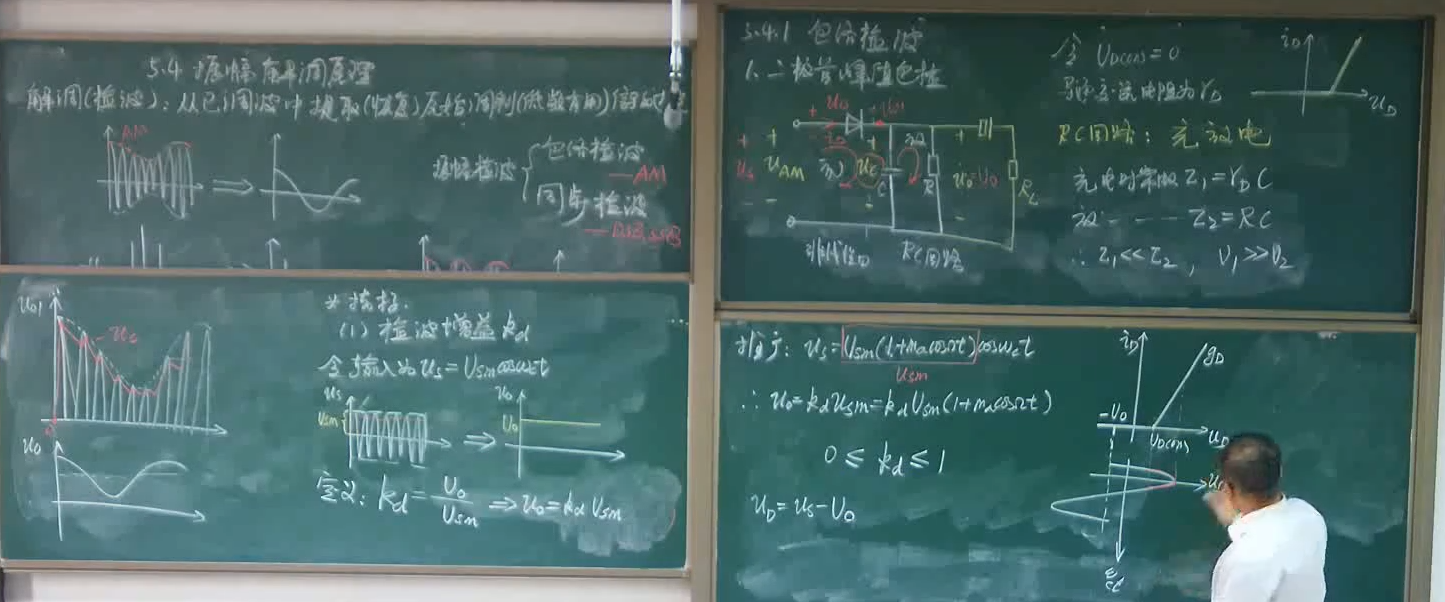 5.4 振幅解调原理
解调(检波)：从已调波中提取(恢复)原始调制(低频有用)信号的过
AM
振幅检波 包络检波
—AM
同步检波
—DSB SSB
u01
uc
u0
※指标.
(1) 检波增益 kd
令输入为 us=Usmcosωct
us
Usm
u0
U0
定义: kd = U0/Usm ⇒ u0 = kd Usm
5.4.1 包络检波
1. 二极管峰值包检
us
uAM
uD
iD
充
放
uc
C
R
u0=U0
RL
非线性D
RC回路
令 UD(on)=0
导通交流电阻为 rD
RC回路：充放电
充电时常数 τ1=rDC
放 - - - τ2=RC
∴ τ1<<τ2, V1>>V2
iD
uD
推广: us=Usm(1+macosΩt)cosωct
usm
∴ u0=kdusm=kdUsm(1+macosΩt)
0 ≤ kd ≤ 1
uD=us-U0
iD
gD
-U0
UD(on)
uD
ωct